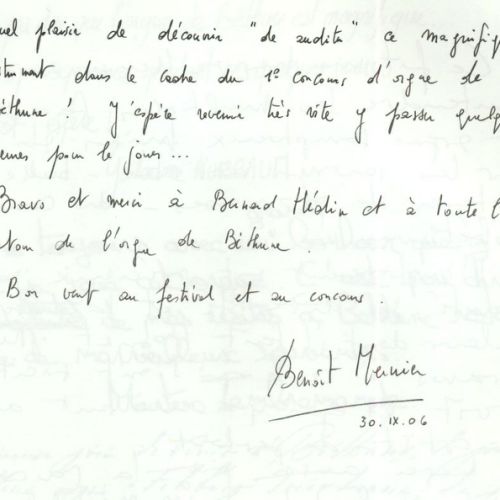 uel plaisir de découvrir "de auditu" ce magnifiq
strument dans le cadre du 1° concours d'orgue de
éthune ! J'espère revenir très vite y passer quelq
eures pour le jouer...
Bravo et merci à Bernard Hédin et à toute l'
de l'orgue de Béthune.
Bon vent au festival et au concours.
Benoît Mernier
30.IX.06